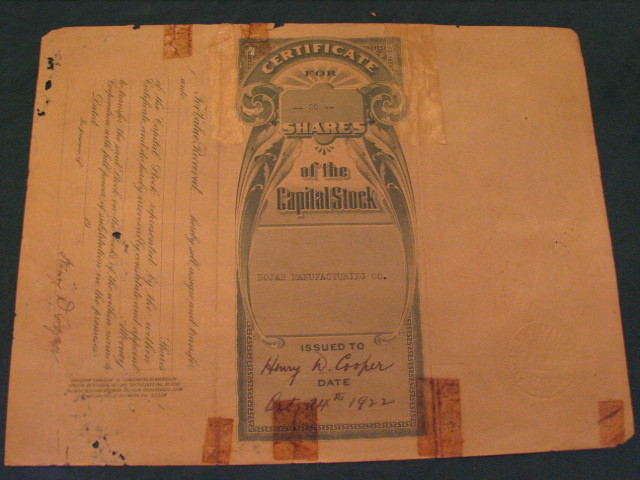 For Value Received, hereby sell, assign and transfer
unto
Shares
of the Capital Stock represented by the within
Certificate and do hereby irrevocably constitute and appoint
Attorney
to transfer the said Stock on the books of the within named
Corporation with full power of substitution in the premises.
Dated 19
In presence of
Henry D. Cooper
CERTIFICATE
FOR
SHARES
of the
Capital Stock
MANUFACTURING CO.
ISSUED TO
Henry D. Cooper
DATE
Oct. 24th 1922